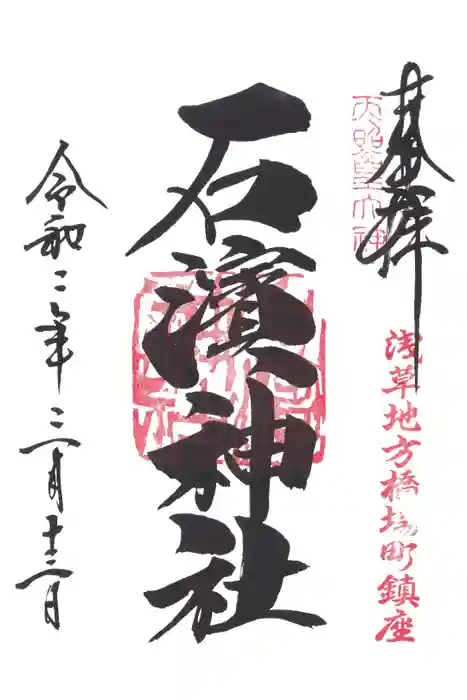 奉拝
天照皇大神
浅草地方橋場町鎮座
石濱神社
令和二年二月十二日